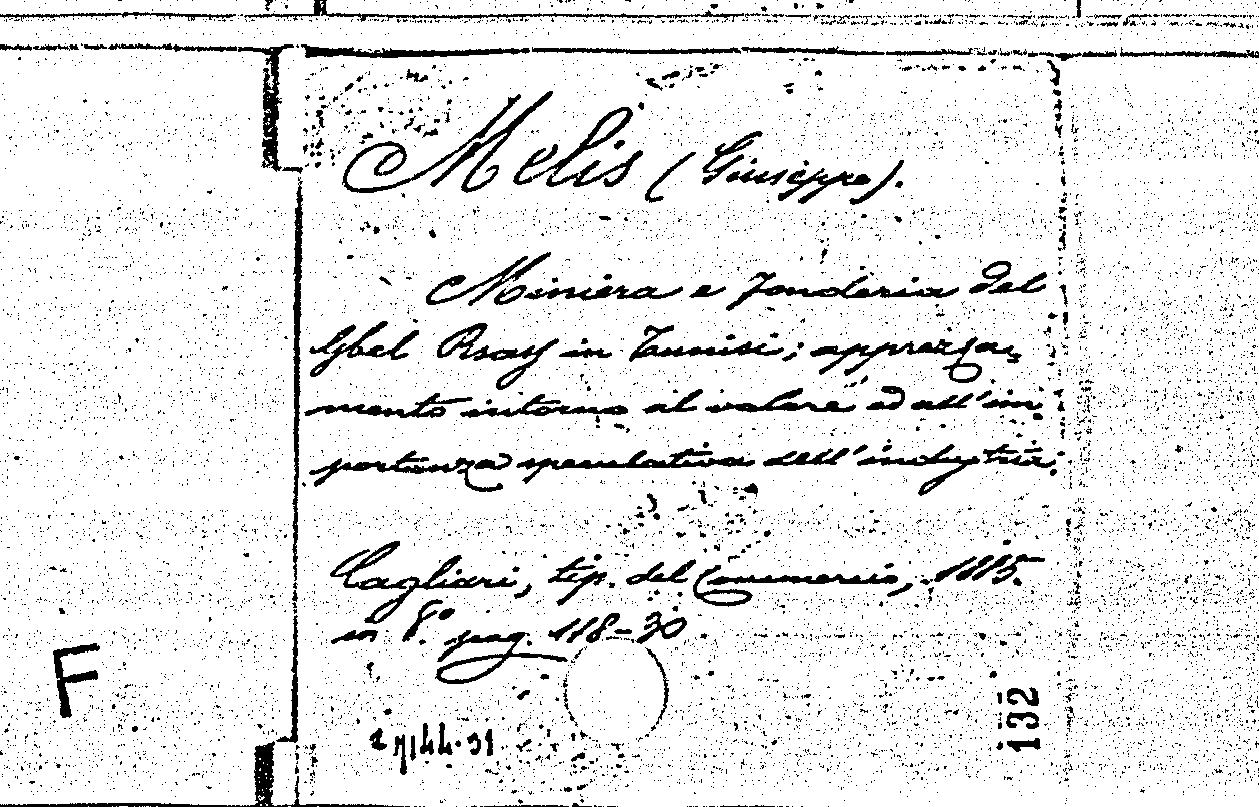 Melis (Giuseppe).
Miniera e Fonderia del
Gbel Rsass in Tunisi; apprezza-
mento intorno al valore ed all'im-
portanza speculativa dell'industria.
Cagliari, tip. del Commercio, 1885.
in 8.° pag. 118-30
F
132